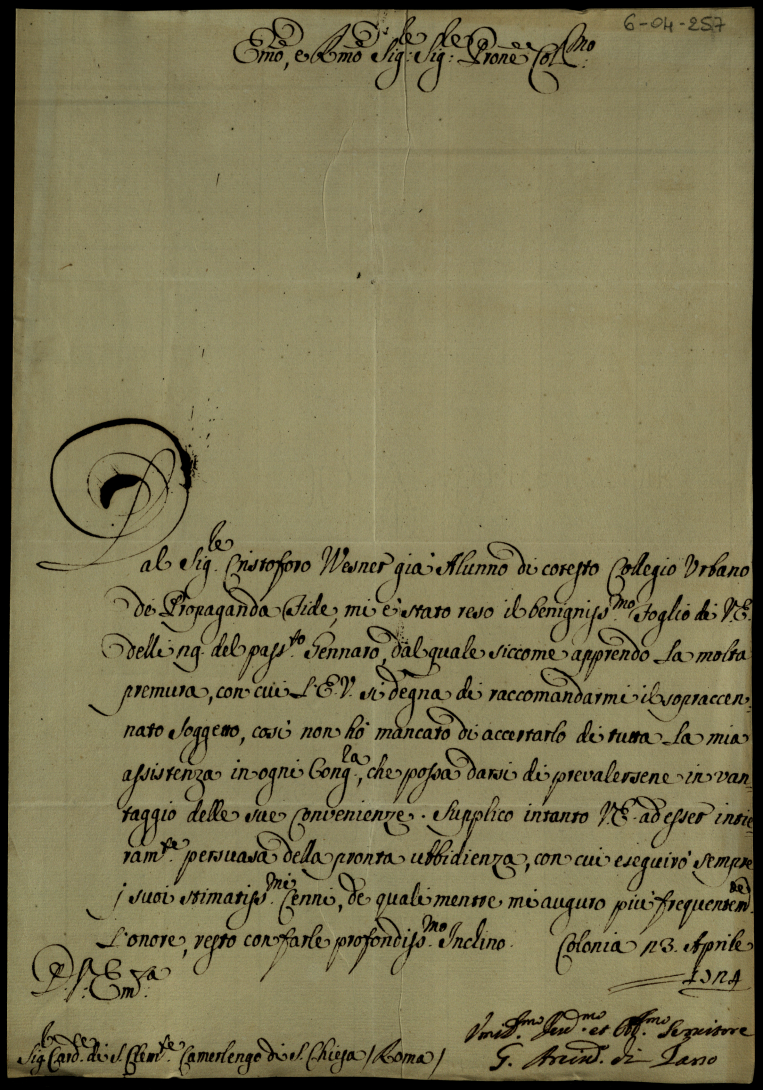 6-04-257
Emo, e Rmo Sig:re Sig:re Prone Colmo:
Dal Sig.re Cristoforo Wesner già Alunno di cotesto Collegio Urbano
de Propaganda Fide, mi è stato reso il benigniss.mo Foglio di V.E.
delli 29. del pass.to Gennaro, dal quale siccome apprendo La molta
premura, con cui L'E.V. si degna di raccomandarmi il sopraccen-
nato Soggetto, così non hò mancato di accertarlo di tutta La mia
assistenza in ogni Cong.ra, che possa darsi di prevalersene in van-
taggio delle sue Convenienze. Supplico intanto V.E. ad esser intie-
ram.te persuasa della pronta ubbidienza, con cui eseguirò sempre
i suoi stimatiss.mi Cenni, de quali mentre mi auguro più frequentem.te
L'onore, resto con farle profondiss.mo Inchino. Colonia 23. Aprile
1724
D. V. Em.za
Sig.re Card.le di S. Clem.te Camerlengo di S. Chiesa / Roma /
Umil.mo Dev.mo et Obl.mo Servitore
G. Arciv. di Tarso